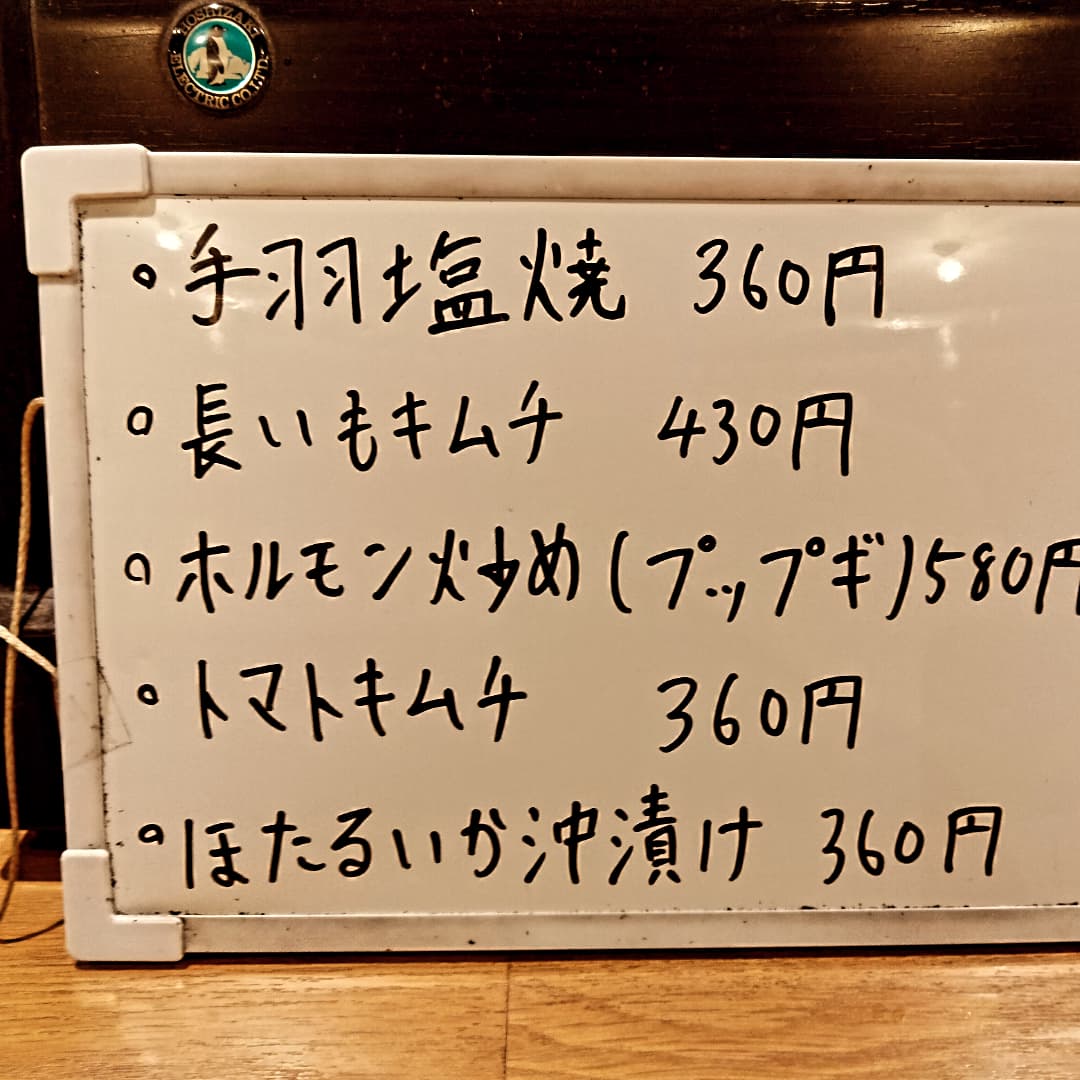 HOSHIZAKI
ELECTRIC CO.LTD.
・手羽塩焼 360円
・長いもキムチ 430円
・ホルモン炒め(プップギ)580円
・トマトキムチ 360円
・ほたるいか沖漬け 360円